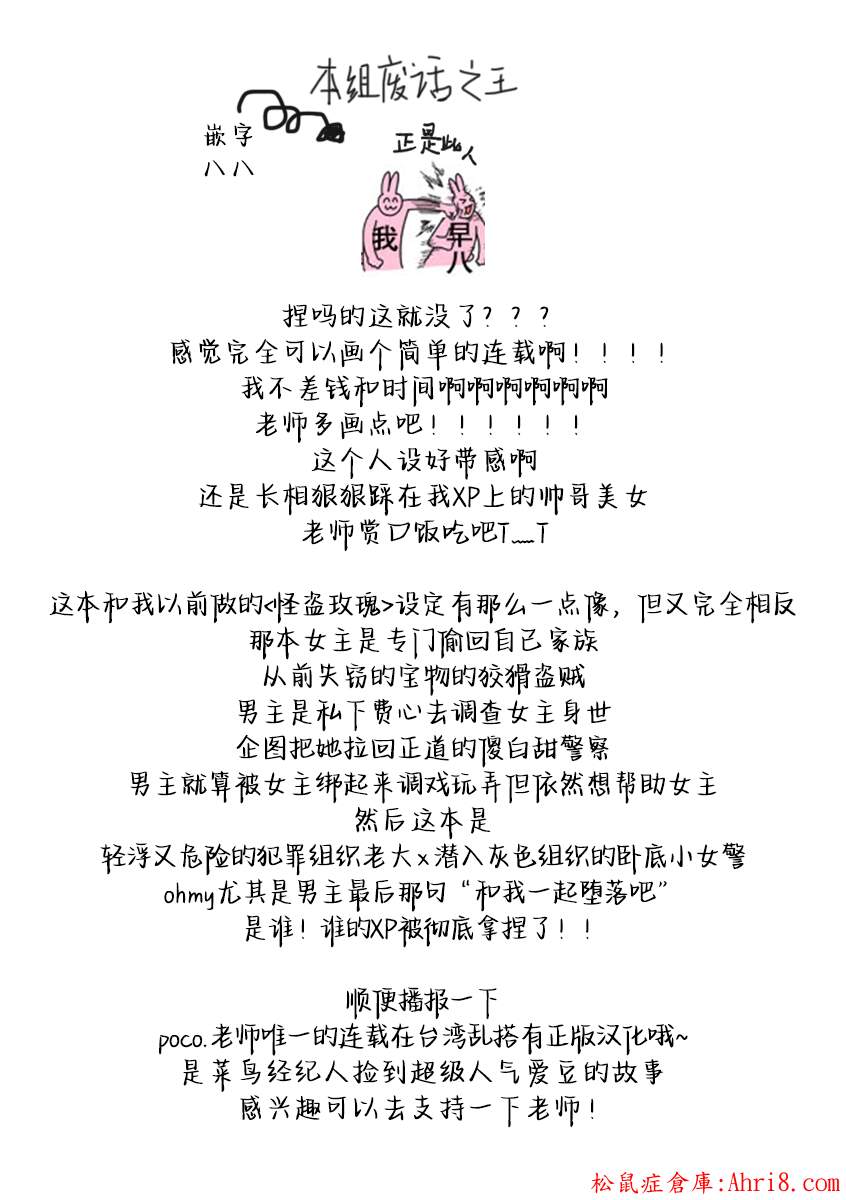 本组废话之王
嵌字
八八
正是此人
我
早八
捏吗的这就没了？？？
感觉完全可以画个简单的连载啊！！！！
我不差钱和时间啊啊啊啊啊啊
老师多画点吧！！！！！！
这个人设好带感啊
还是长相狠狠踩在我XP上的帅哥美女
老师赏口饭吃吧T﹏T
这本和我以前做的<怪盗玫瑰>设定有那么一点像，但又完全相反
那本女主是专门偷回自己家族
从前失窃的宝物的狡猾盗贼
男主是私下费心去调查女主身世
企图把她拉回正道的傻白甜警察
男主就算被女主绑起来调戏玩弄但依然想帮助女主
然后这本是
轻浮又危险的犯罪组织老大x潜入灰色组织的卧底小女警
ohmy尤其是男主最后那句“和我一起堕落吧”
是谁！谁的XP被彻底拿捏了！！
顺便播报一下
poco.老师唯一的连载在台湾乱搭有正版汉化哦~
是菜鸟经纪人捡到超级人气爱豆的故事
感兴趣可以去支持一下老师！
松鼠症倉庫:Ahri8.com